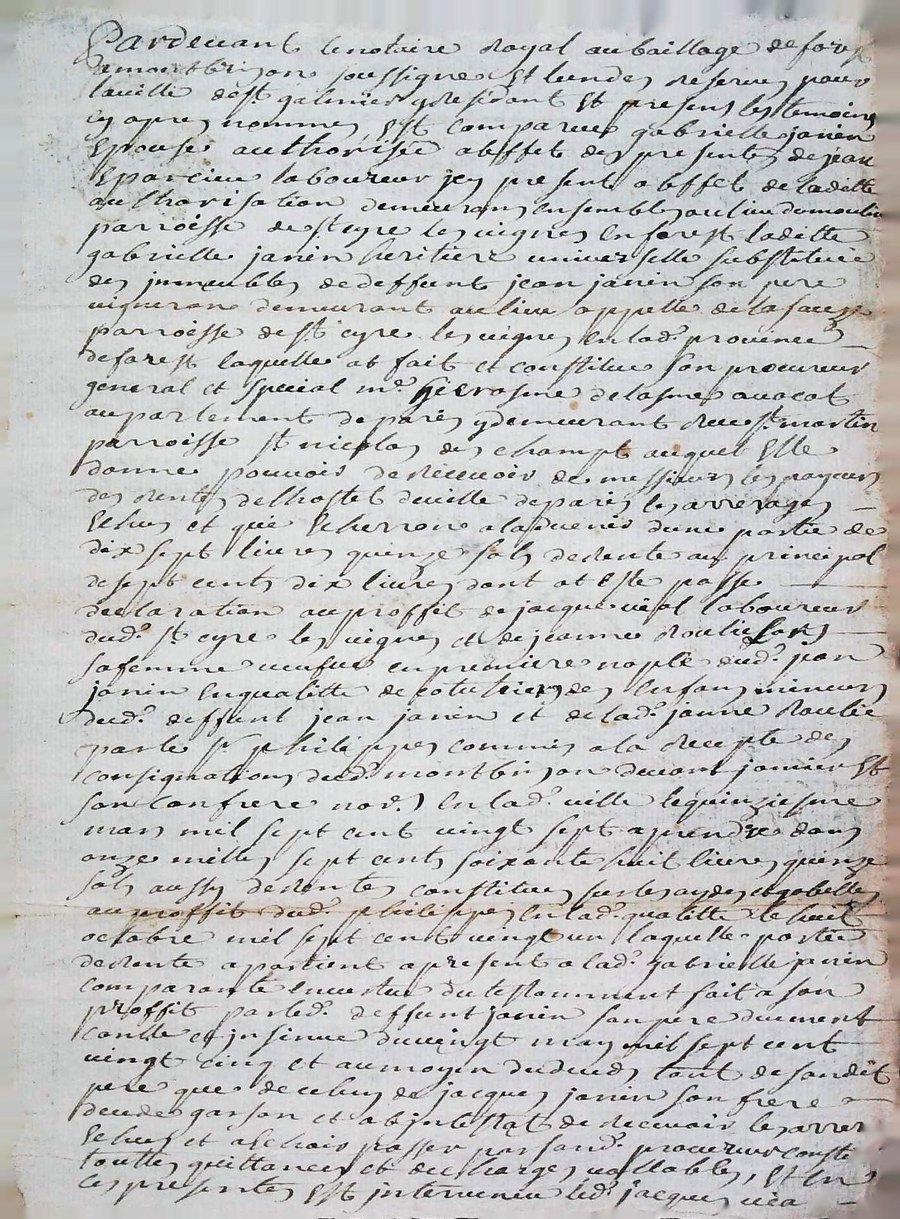 Pardevant le notaire Royal au baillage de forest
a montbrison soussigne et lun des reserves pour
la ville de st galmier y residant et presens les temoins
cy apres nommes est comparue gabrielle janin
Epouse authorisée a leffet des presentes de jean
Eparcieu laboureur icy present a leffet de laditte
authorisation demeurans ensembles au lieu du moulin
parroisse de st cyre les vignes en forest laditte
gabrielle janin heritiere universelle substituée
des immeubles de deffunt jean janin son pere
vigneron demeurant au lieu appelle de la
parroesse de st cyre les vignes en lad. province
de forest laquelle at fait et constitue son procureur
general et special me. hierosme delasme avocat
au parlement de paris y demeurant Rue st martin
parroisse st nicolas des champt auquel Elle
donne pouvoir de Recevoir de messieurs les payeurs
des Rentes de lhostel deville de paris les arrerages
Echus et qui Echerront a ladvenir dune partie de
dix sept livres quinze sols de Rente au principal
de sept cents dix livres dont at este passe
declaration au proffit de jacque vial laboureur
dud. st cyre les vignes et de jeanne
sa femme veufve en premiere nople dud. jean
janin Enqualitte de cotutrices des Enfans mineurs
dud. deffunt jean janin et de lad. janne
par le sr philippes commis a la Recepte des
consignations dud. montbrison devant janvier et
son confrere nor.s en lad. ville le quinziesme
mars mil sept cent vingt sept a prendre dans
onze milles sept cents soixante huit livres quinze
sols aussy de Rentes constitues sur les aydes et gabelles
au proffit dud. philippes en lad. qualitte le huit
octobre mil sept cent vingt un laquelle partie
de Rente apartient a present a lad. gabrielle janin
comparante en vertu du testamment fait a son
proffit par led. deffunt janin son pere duement
controlle et insinue du vingt may mil sept cent
vingt cinq et au moyen du deceds tant de sondit
pere que de celuy de jacques janin son frere
decede garson et abintestat de Recevoir les arrer
Echus et a Echoir passer par sond. procureur consti
touttes quittances et decharges vallables, et En
ces presentes est intervenu led. jacques via